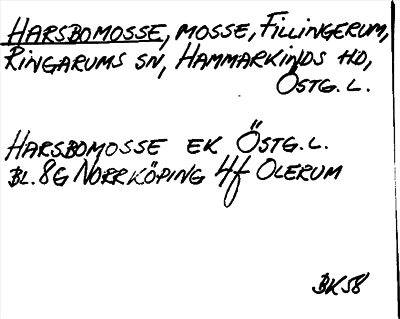 HARSBOMOSSE, MOSSE, FILLINGERUM,
RINGARUMS SN, HAMMARKINDS HD,
ÖSTG. L.
HARSBOMOSSE EK ÖSTG. L.
BL. 8G NORRKÖPING 4f OLERUM
BK58